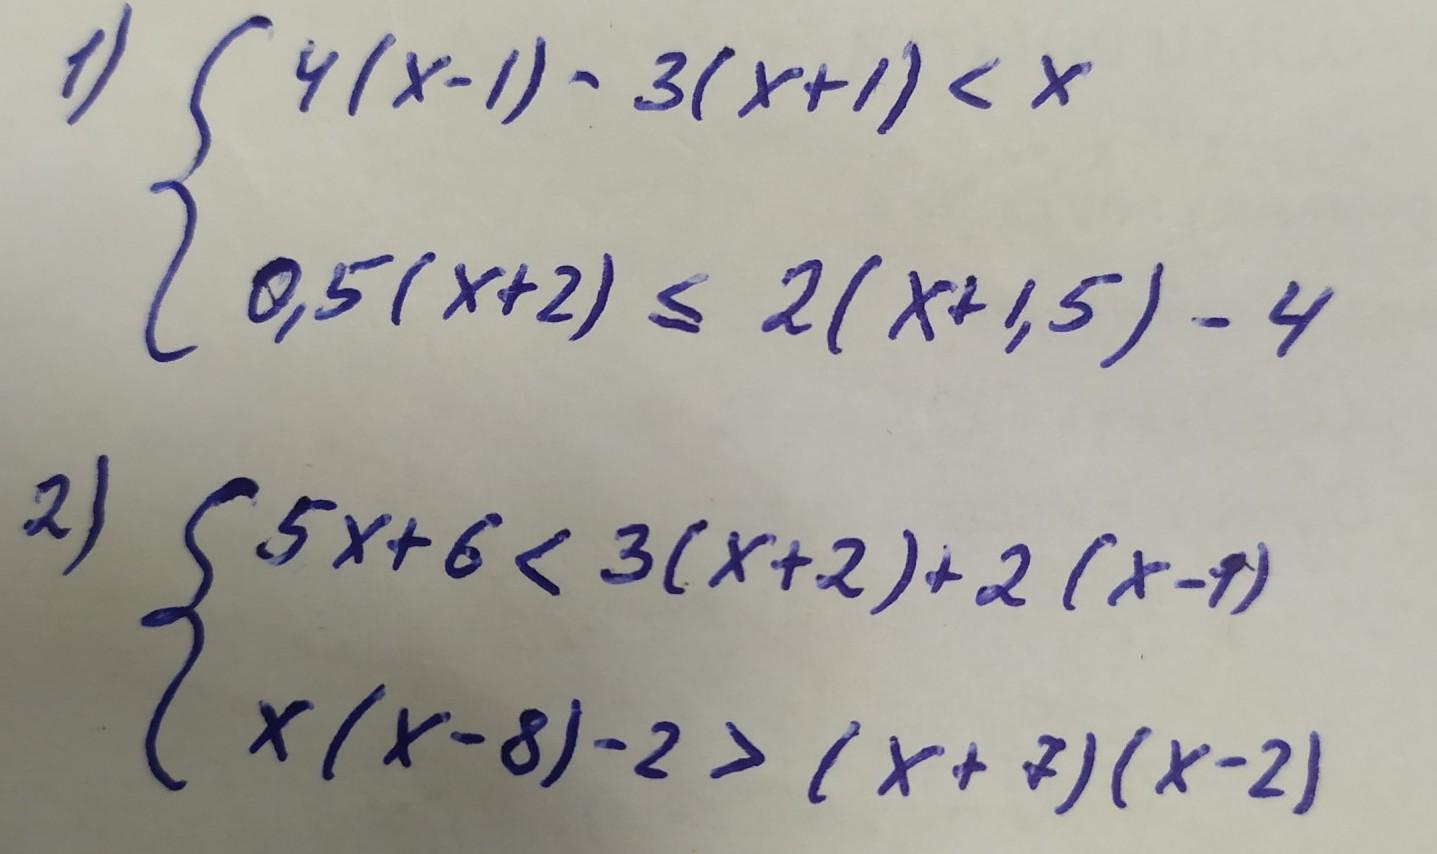 1) { 4(x-1) - 3(x+1) < x
0,5(x+2) ≤ 2(x+1,5) - 4
2) { 5x+6 < 3(x+2)+2(x-1)
x(x-8)-2 > (x+7)(x-2)